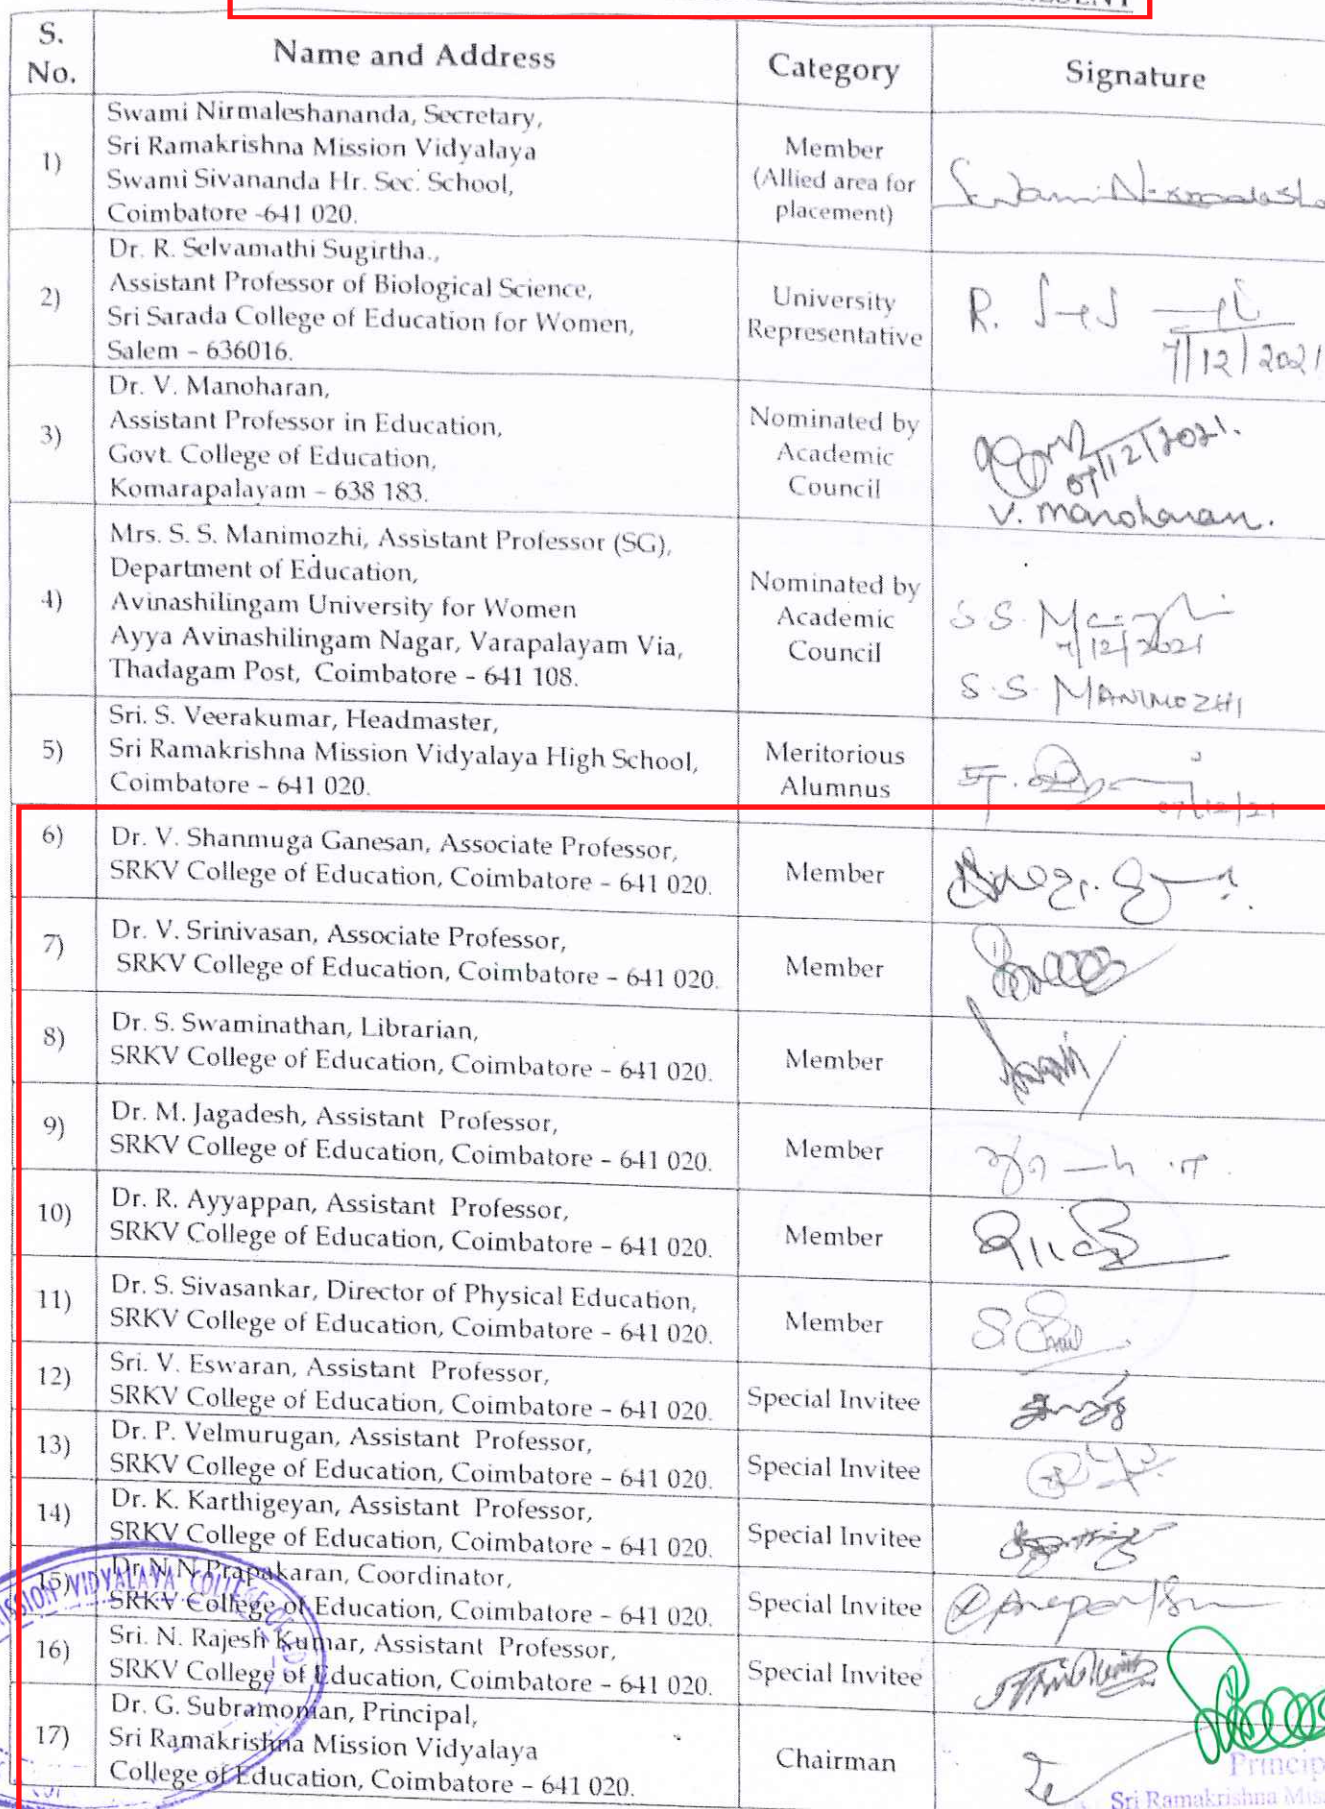 S.
No.
Name and Address
Category
Signature
1)
Swami Nirmaleshananda, Secretary,
Sri Ramakrishna Mission Vidyalaya
Swami Sivananda Hr. Sec. School,
Coimbatore -641 020.
Member
(Allied area for
placement)
Swami
2)
Dr. R. Selvamathi Sugirtha.,
Assistant Professor of Biological Science,
Sri Sarada College of Education for Women,
Salem – 636016.
University
Representative
R.
7/12/2021
3)
Dr. V. Manoharan,
Assistant Professor in Education,
Govt. College of Education,
Komarapalayam – 638 183.
Nominated by
Academic
Council
07/12/2021.
V. manoharan.
4)
Mrs. S. S. Manimozhi, Assistant Professor (SG),
Department of Education,
Avinashilingam University for Women
Ayya Avinashilingam Nagar, Varapalayam Via,
Thadagam Post, Coimbatore – 641 108.
Nominated by
Academic
Council
S S.
7/12/2021
S. S. MANIMOZHI
5)
Sri. S. Veerakumar, Headmaster,
Sri Ramakrishna Mission Vidyalaya High School,
Coimbatore – 641 020.
Meritorious
Alumnus
07/12/21
6)
Dr. V. Shanmuga Ganesan, Associate Professor,
SRKV College of Education, Coimbatore – 641 020.
Member
7)
Dr. V. Srinivasan, Associate Professor,
SRKV College of Education, Coimbatore – 641 020.
Member
8)
Dr. S. Swaminathan, Librarian,
SRKV College of Education, Coimbatore – 641 020.
Member
9)
Dr. M. Jagadesh, Assistant Professor,
SRKV College of Education, Coimbatore – 641 020.
Member
10)
Dr. R. Ayyappan, Assistant Professor,
SRKV College of Education, Coimbatore – 641 020.
Member
11)
Dr. S. Sivasankar, Director of Physical Education,
SRKV College of Education, Coimbatore – 641 020.
Member
12)
Sri. V. Eswaran, Assistant Professor,
SRKV College of Education, Coimbatore – 641 020.
Special Invitee
13)
Dr. P. Velmurugan, Assistant Professor,
SRKV College of Education, Coimbatore – 641 020.
Special Invitee
14)
Dr. K. Karthigeyan, Assistant Professor,
SRKV College of Education, Coimbatore – 641 020.
Special Invitee
15)
Dr N.N.Prapakaran, Coordinator,
SRKV College of Education, Coimbatore – 641 020.
Special Invitee
16)
Sri. N. Rajesh Kumar, Assistant Professor,
SRKV College of Education, Coimbatore – 641 020.
Special Invitee
17)
Dr. G. Subramonian, Principal,
Sri Ramakrishna Mission Vidyalaya
College of Education, Coimbatore – 641 020.
Chairman
VIDYALAYA COLLEGE OF
Sri Ramakrishna